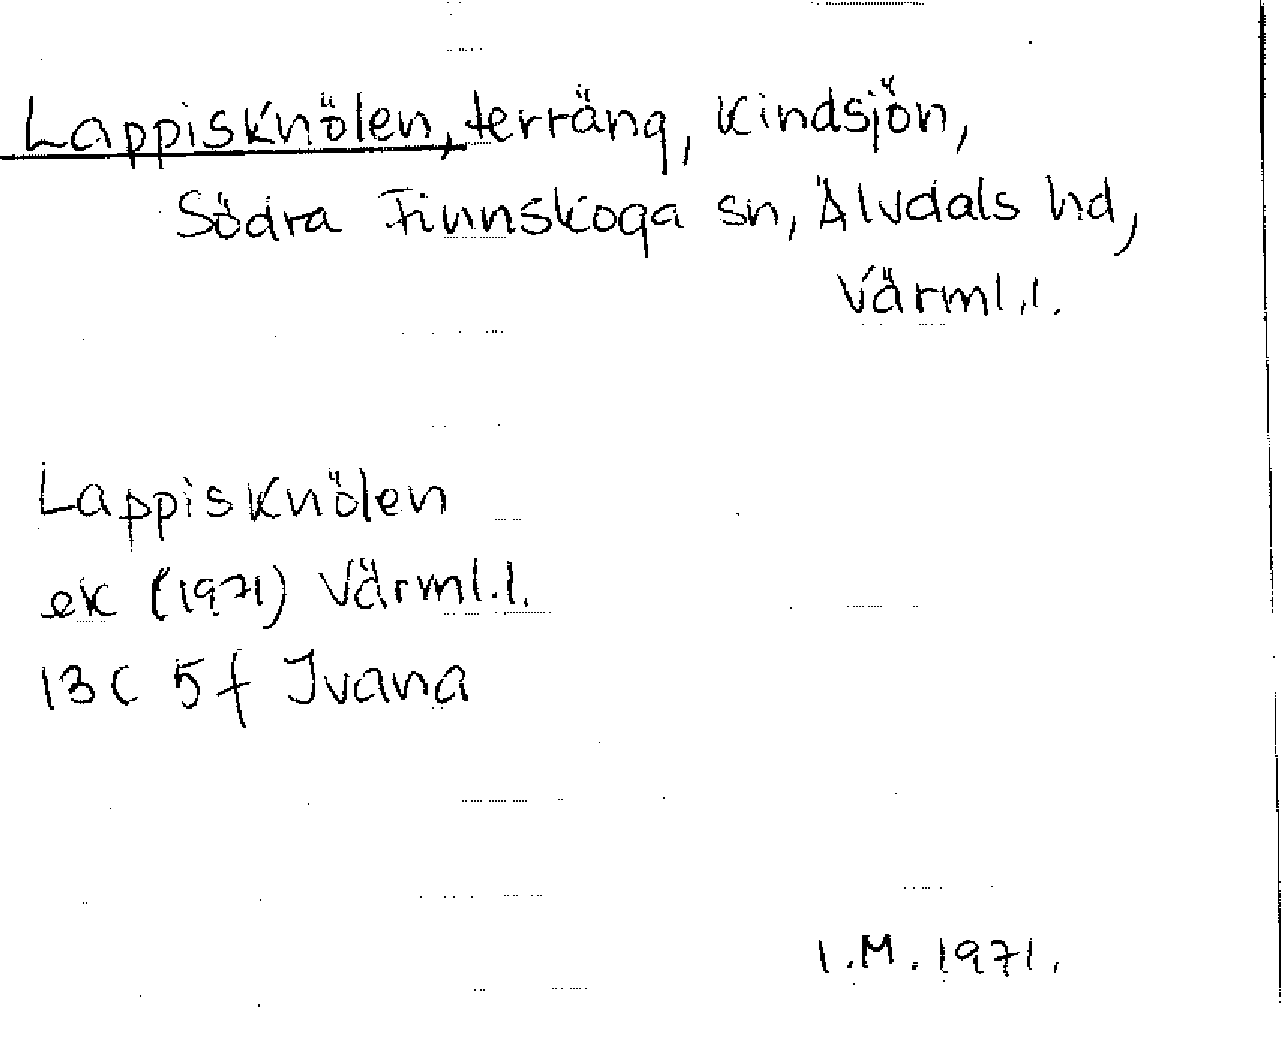 Lappisknölen, terräng, Kindsjön,
Södra Finnskoga sn, Älvdals hd,
Värml.l.
Lappisknölen
ek (1971) Värml.l.
13C 5f Ivana
I.M. 1971.